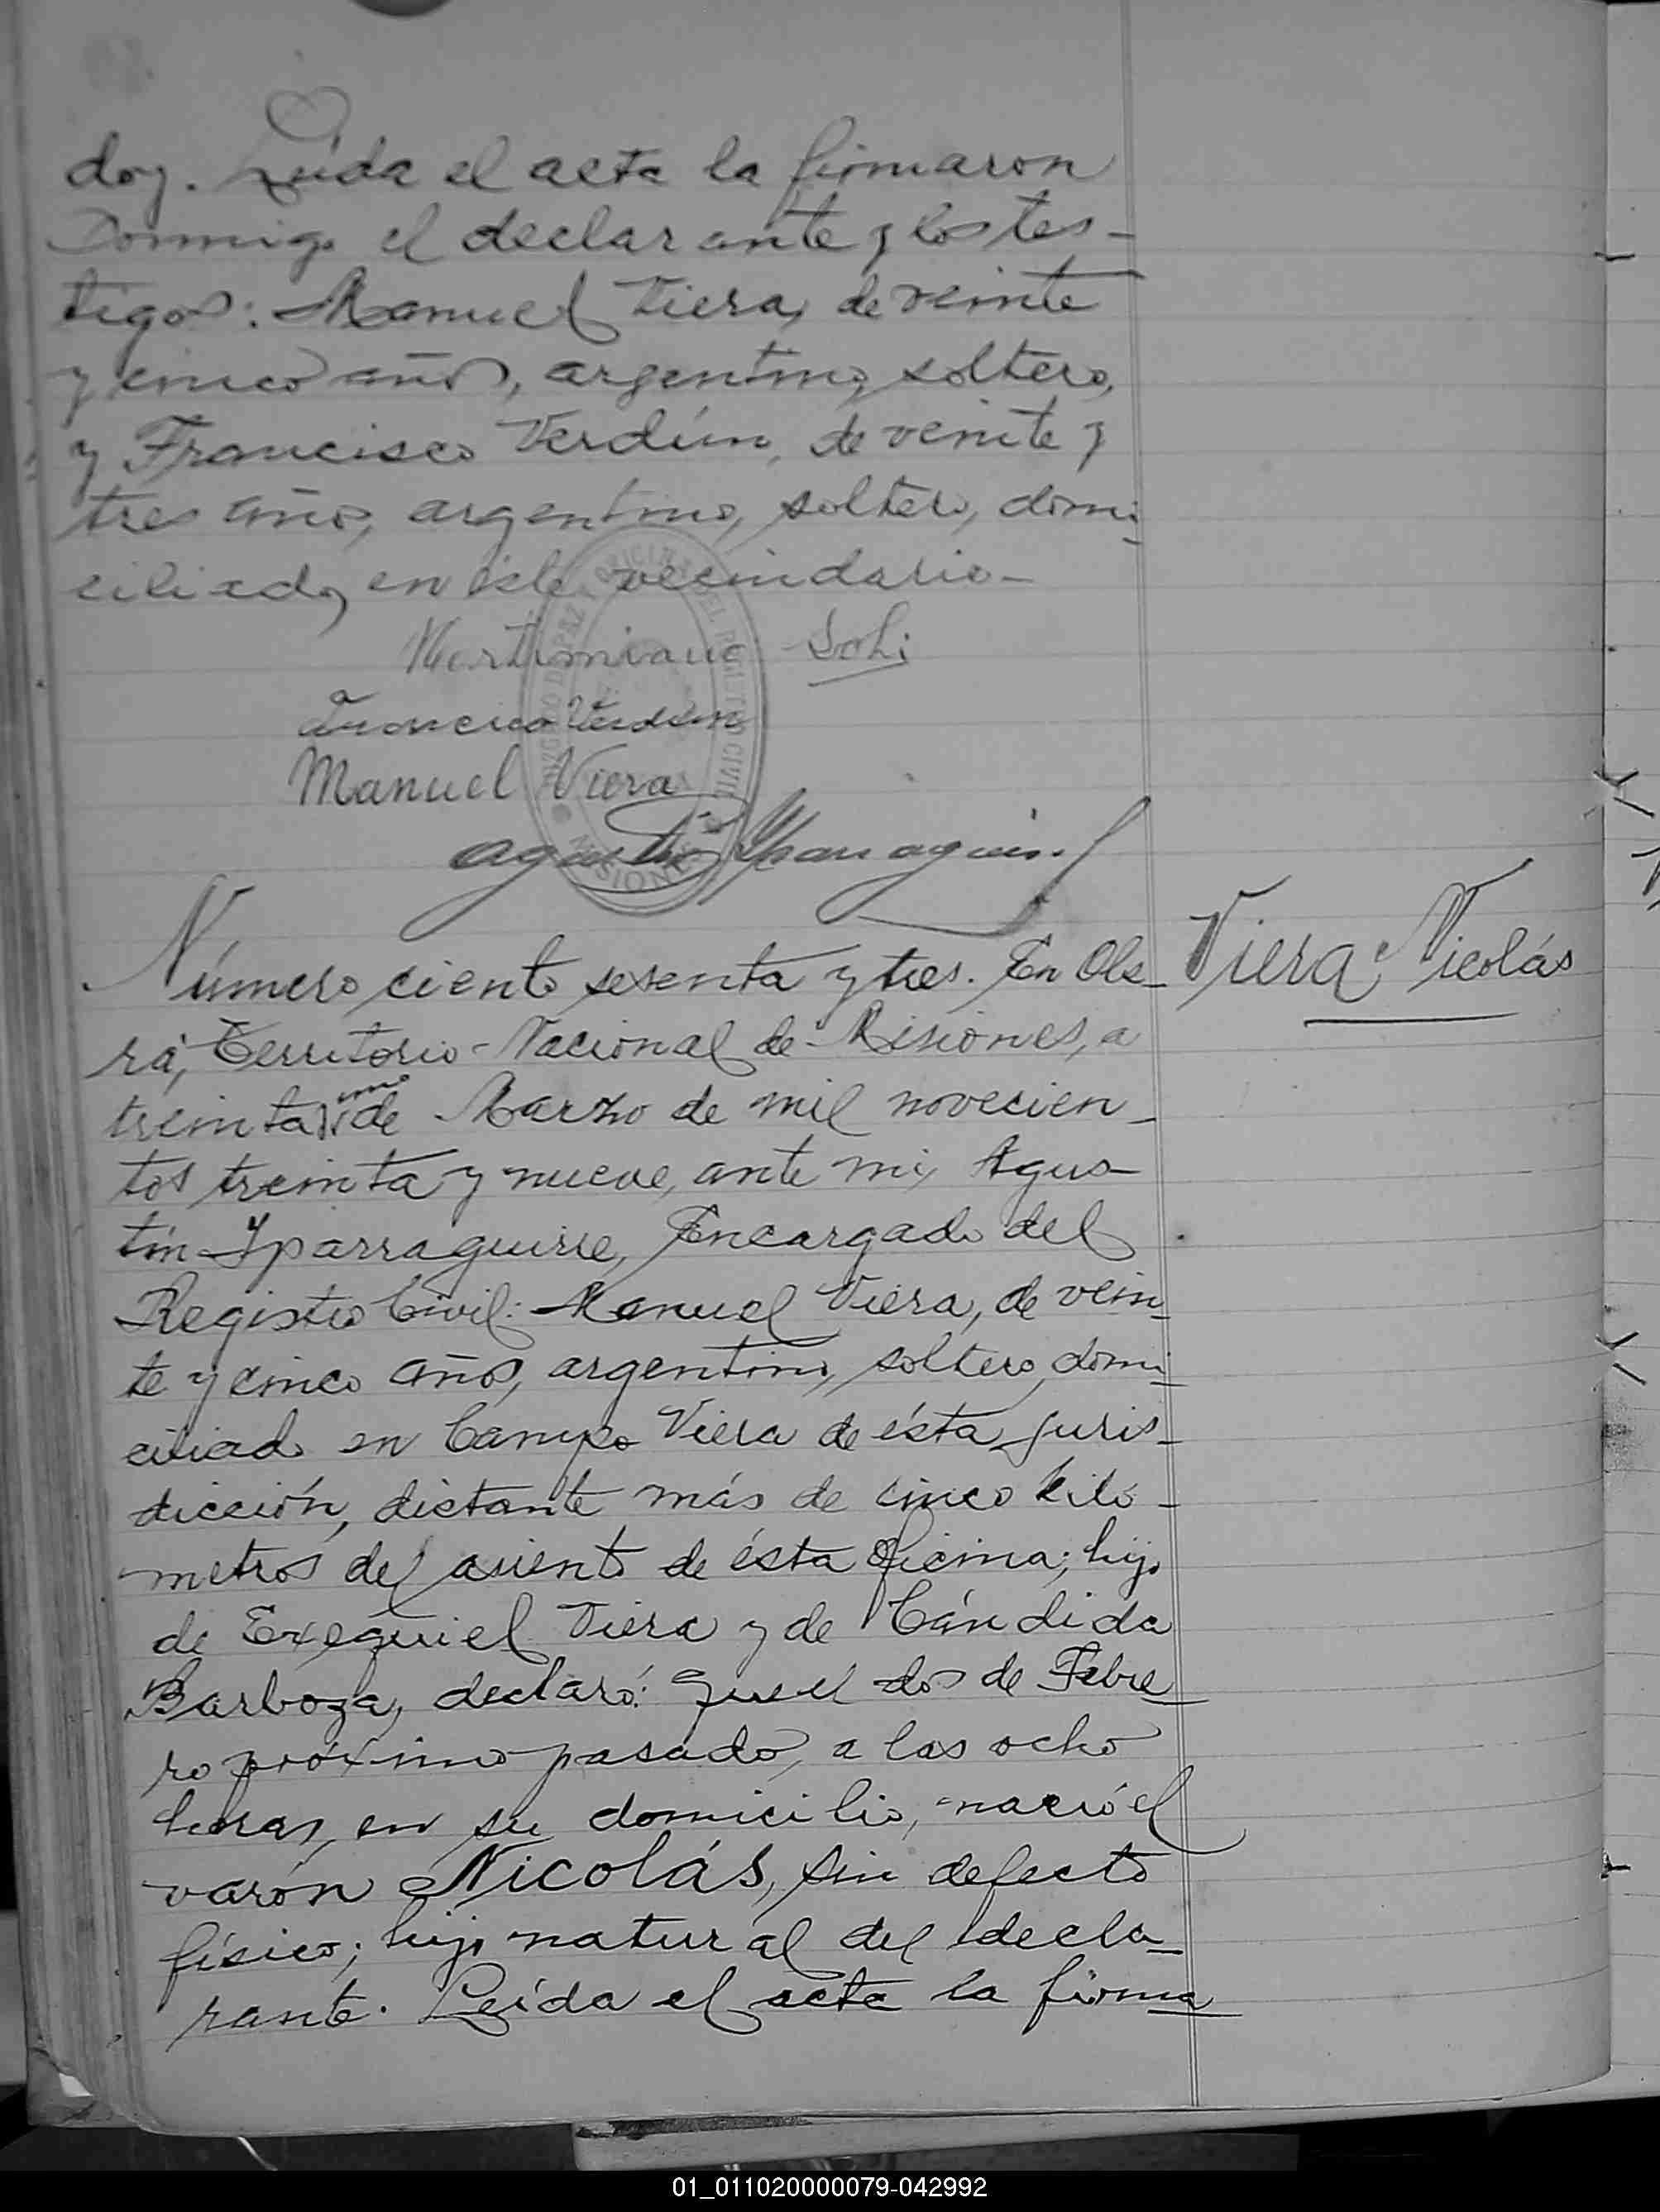 doy. Leída el acta la firmaron
conmigo el declarante y los tes-
tigos: Manuel Viera, de veinte
y cinco años, argentino, soltero,
y Francisco Verdún, de veinte y
tres años, argentino, soltero, domi-
ciliados en éste vecindario-
Francisco Verdun
Manuel Viera
Agustín Yparraguirre
OFICINA DEL REGISTRO CIVIL
JUZGADO DE PAZ
MISIONES
Número ciento sesenta y tres. En Obe-
Viera Nicolás
rá, Territorio Nacional de Misiones, a
treinta y uno de Marzo de mil novecien-
tos treinta y nueve, ante mi, Agus-
tín Yparraguirre, Encargado del
Registro Civil: Manuel Viera, de vein-
te y cinco años, argentino, soltero, domi-
ciliado en Campo Viera de ésta juris-
dicción, distante más de cinco kiló-
metros del asiento de ésta Oficina; hijo
de Exequiel Viera y de Cándida
Barboza, declaró: Que el dos de Febre-
ro próximo pasado, a las ocho
horas, en su domicilio, nació el
varón Nicolás, sin defecto
físico; hijo natural del decla-
rante. Leída el acta la firma
01_011020000079-042992